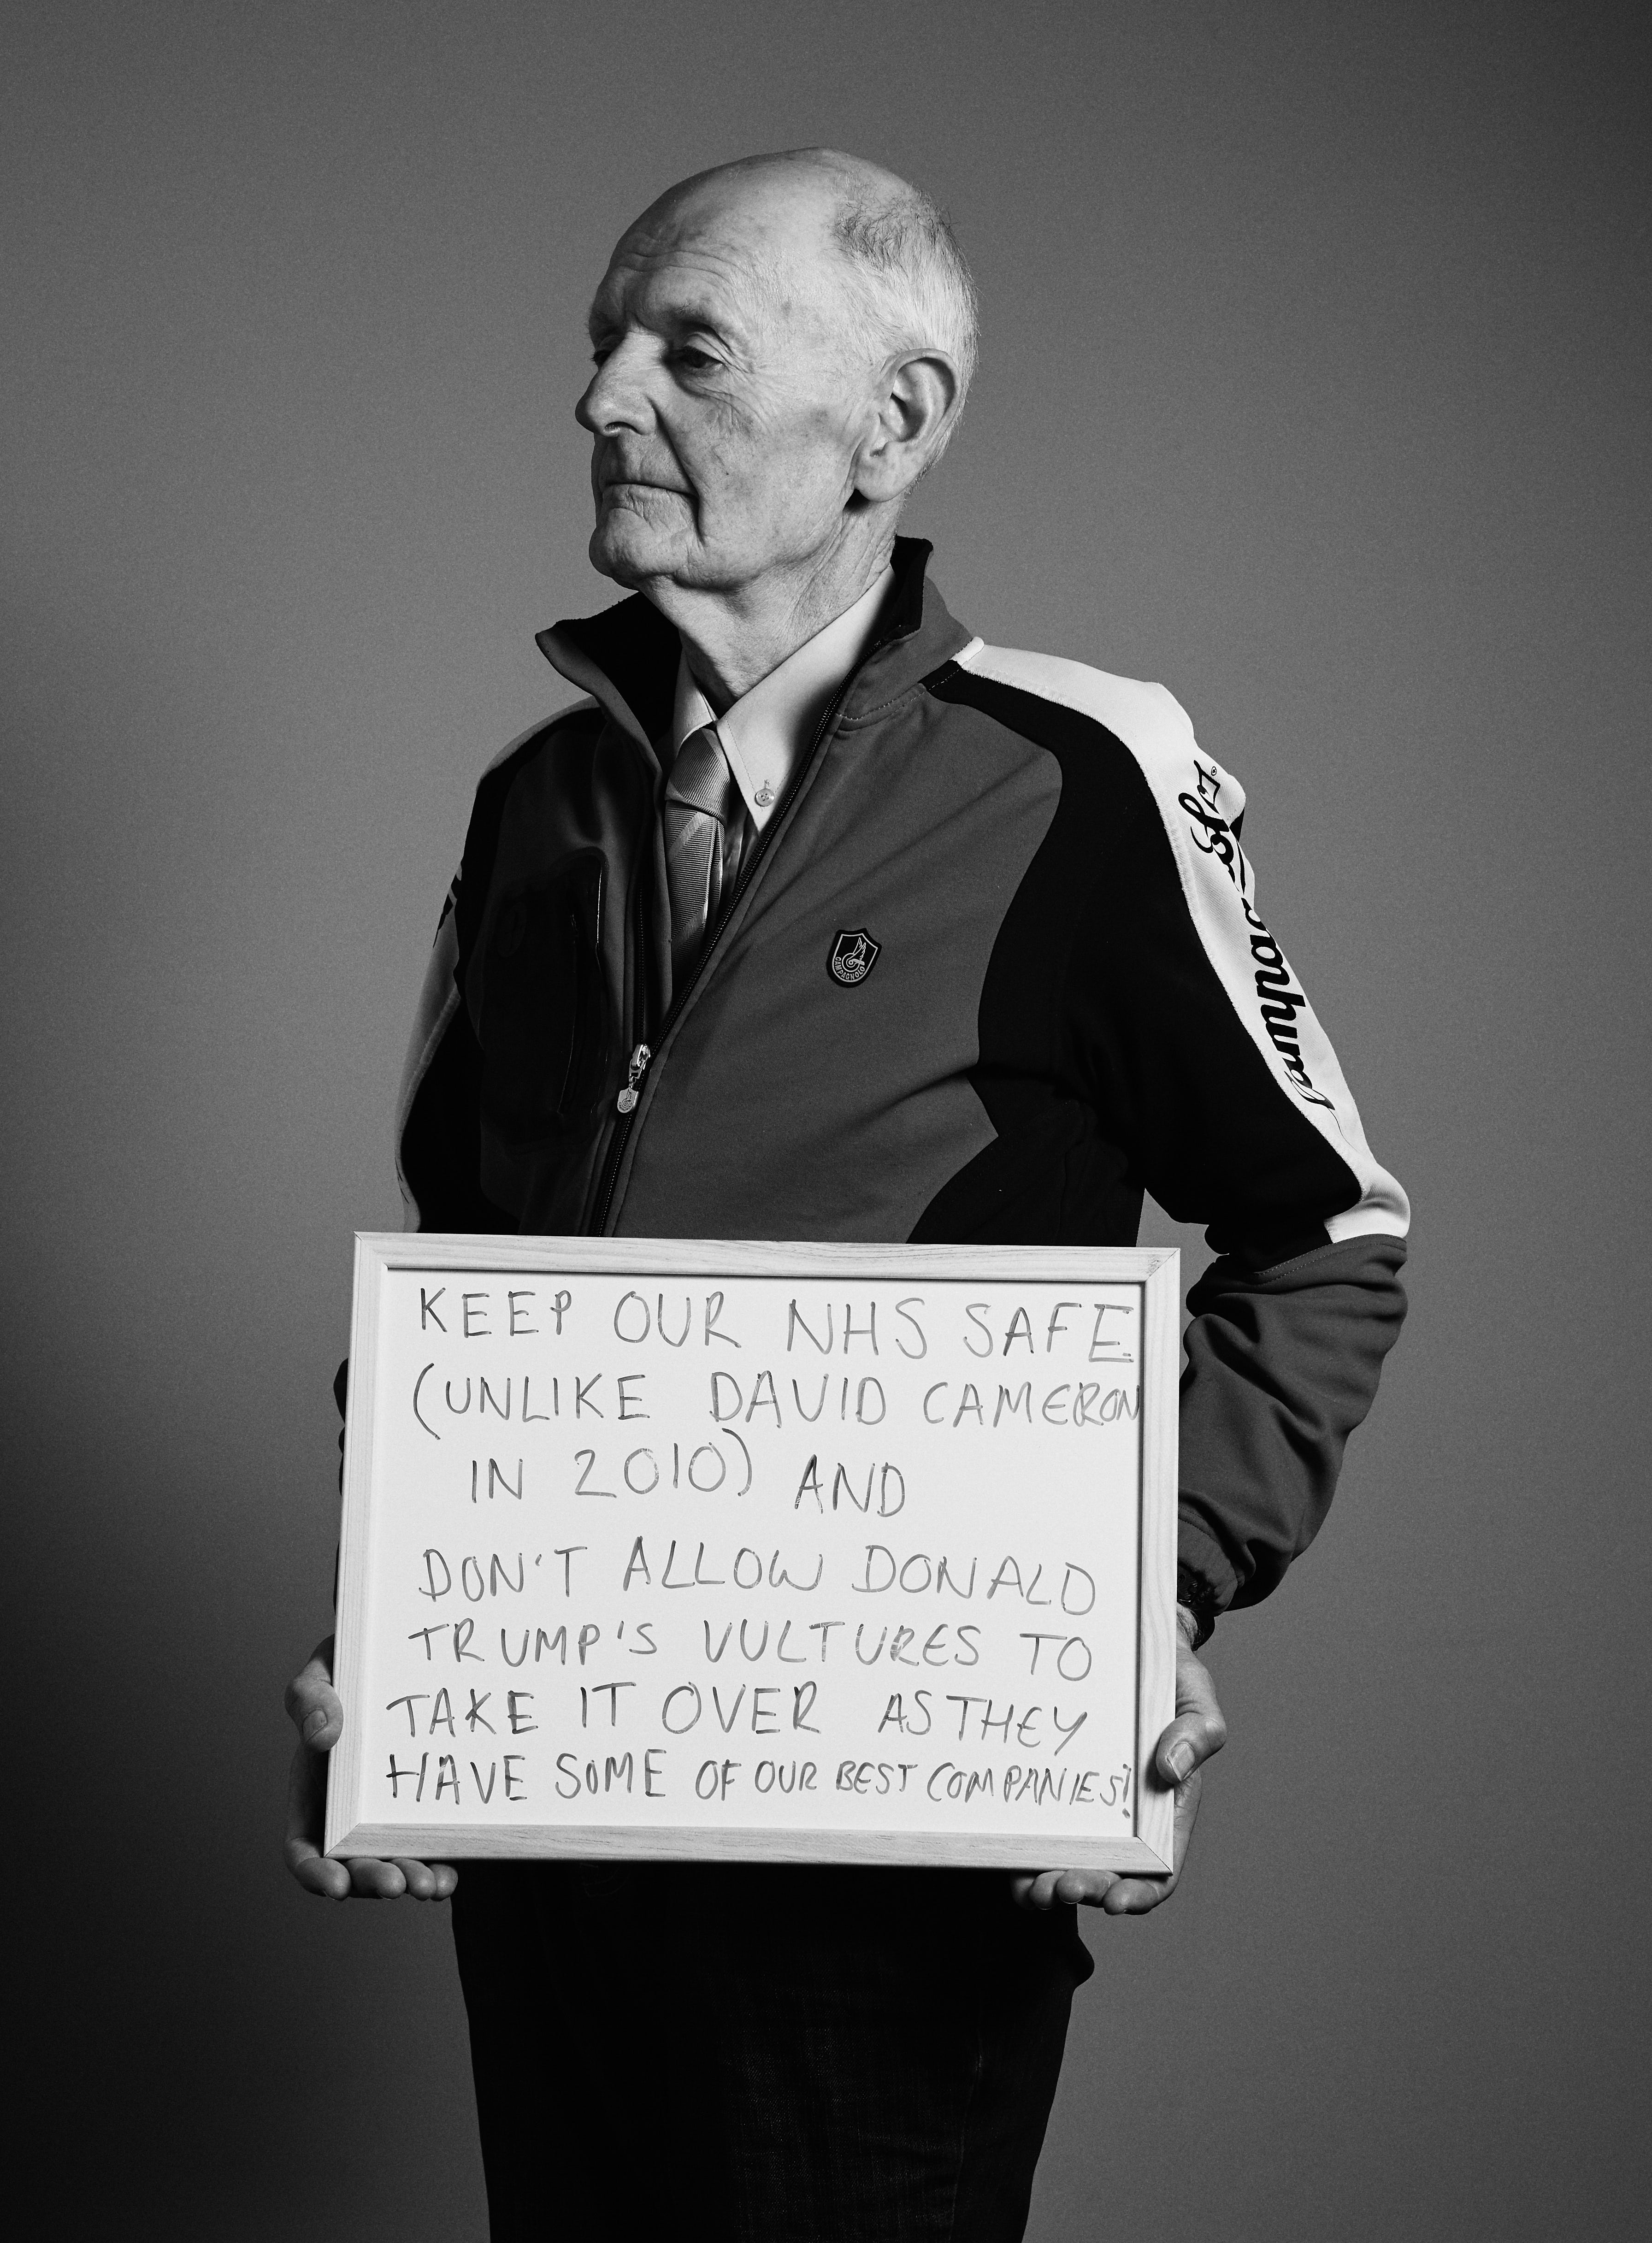 KEEP OUR NHS SAFE
(UNLIKE DAVID CAMERON
IN 2010) AND
DON'T ALLOW DONALD
TRUMP'S VULTURES TO
TAKE IT OVER AS THEY
HAVE SOME OF OUR BEST COMPANIES!
Campagnolo
CAMPAGNOLO